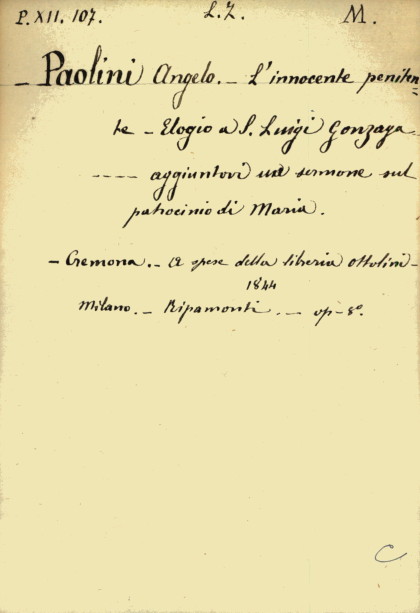 P. XII. 107. L. Z. M.
Paolini Angelo. - L'innocente peniten=
te - Elogio a S. Luigi Gonzaga
---- aggiuntovi un sermone sul
patrocinio di Maria.
- Cremona. - a spese della libreria Ottolini -
1844
Milano. - Ripamonti. - op - 8°.
C